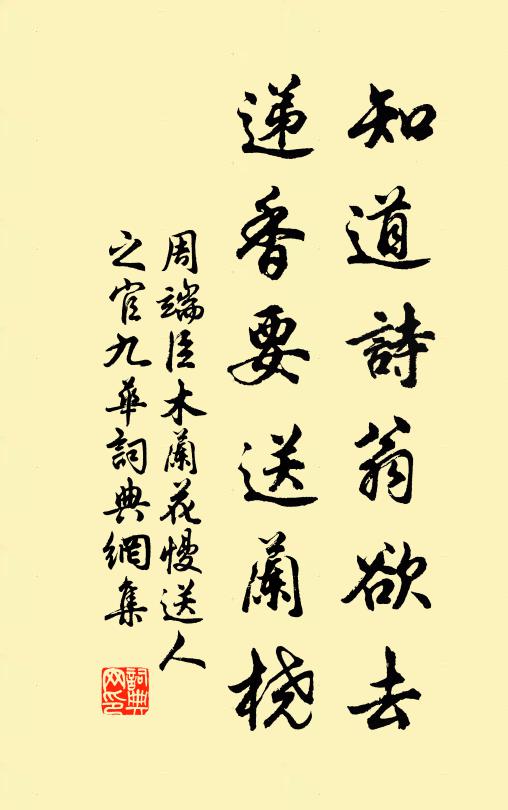 知道詩翁欲去
递香要送蘭橈
周端臣木蘭花慢送人
之官九華詞典網集
詞典网印